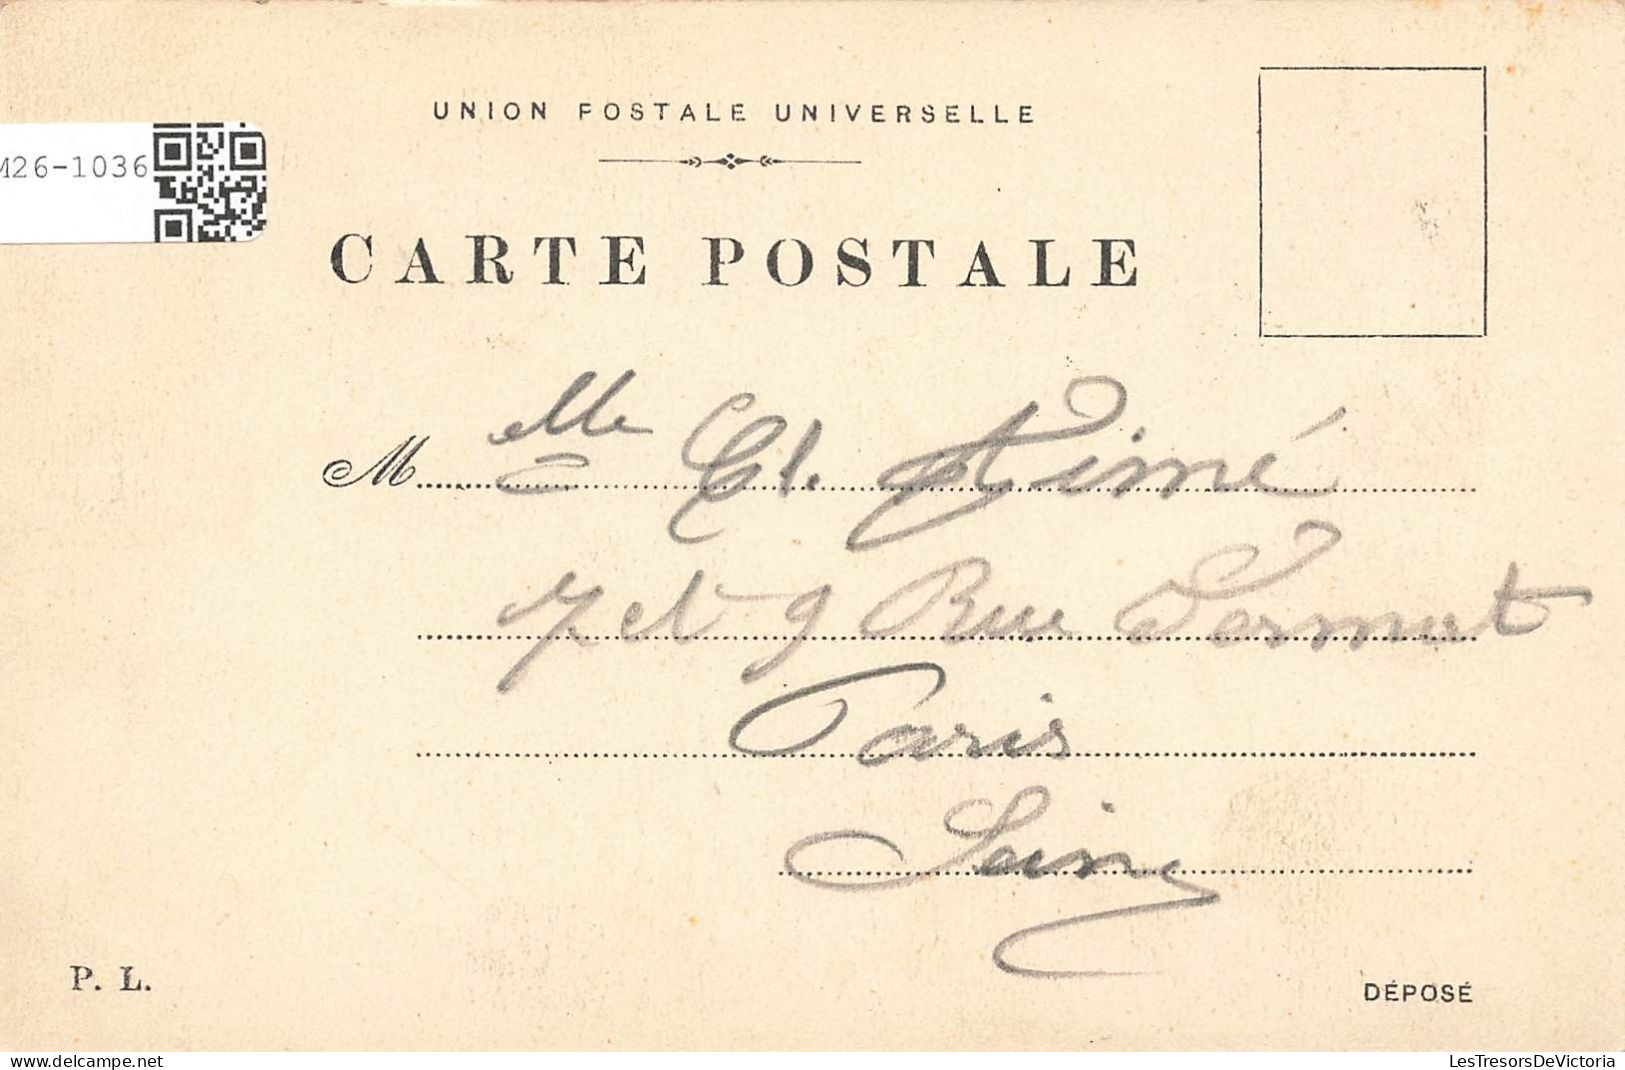 UNION POSTALE UNIVERSELLE
M26-1036
CARTE POSTALE
Melle Cl. Aimé
7 et 9 Rue
Paris
Seine
P. L.
DÉPOSÉ
www.delcampe.net
tresorsdevictoria
LesTresorsDeVictoria